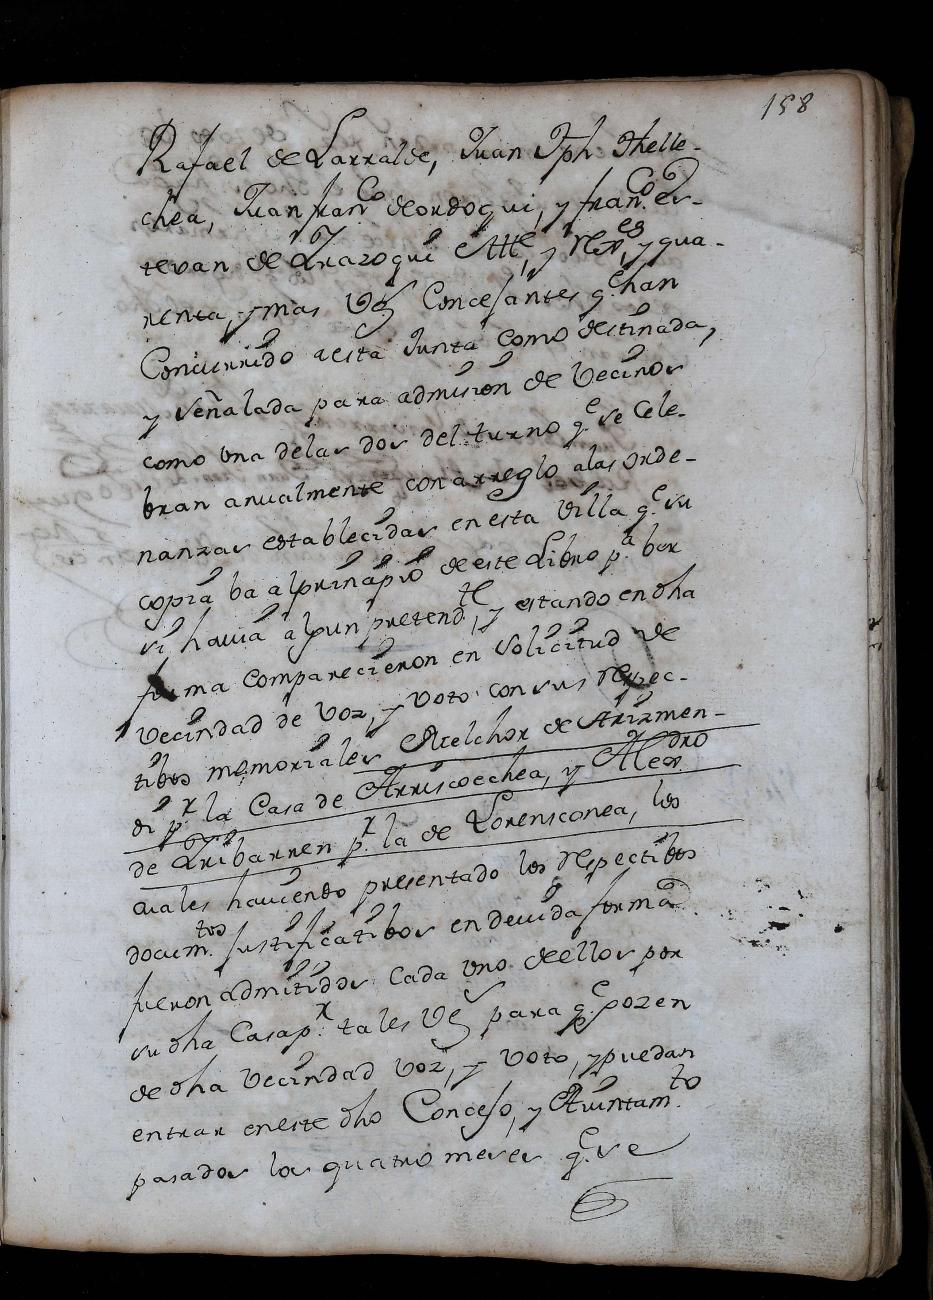 158
Rafael de Larralde, Juan Jph Thelle-
chea, Juan fran.co deordoqui, y fran.co es-
tevan de Yrazoqui Alle, y Rex.es, y qua-
renta, y mas Vs Concejantes q.e han
Concurrido a esta Junta como destinada,
y señalada para admision de Vecinos
como una delas dos del turno q.e se Cele-
bran anualmente con arreglo alas orde-
nanzas establecidas en esta Villa q.e su
copia ba alprinapio de este Libro p.a ber
si havia algun pretend.te, y estando en dha
forma comparecieron en solicitud de
Vecindad de voz, y voto con sus respec-
tibos memoriales Melchor de Arizmen-
di p.r la Casa de Arriscoechea, y Alex.dro
de Yribarren p.r la de Lorensconea, los
cuales haviendo presentado los respectibos
docum.tos justificatibos en devida forma
fueron admitidos Cada uno de ellos por
su dha Casa p.r tales Vs para q.e gozen
de dha vecindad voz, y voto, y puedan
entrar en este dho Concejo, y Aiuntam.to
pasados los quatro meses q.e se